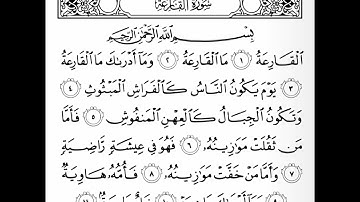 سُورَةُ القَارِعَةِ
بِسْمِ ٱللَّهِ ٱلرَّحْمَٰنِ ٱلرَّحِيمِ
ٱلْقَارِعَةُ ١ مَا ٱلْقَارِعَةُ ٢ وَمَآ أَدْرَىٰكَ مَا ٱلْقَارِعَةُ
٣ يَوْمَ يَكُونُ ٱلنَّاسُ كَٱلْفَرَاشِ ٱلْمَبْثُوثِ ٤
وَتَكُونُ ٱلْجِبَالُ كَٱلْعِهْنِ ٱلْمَنفُوشِ ٥ فَأَمَّا
مَن ثَقُلَتْ مَوَٰزِينُهُۥ ٦ فَهُوَ فِى عِيشَةٍ رَّاضِيَةٍ
٧ وَأَمَّا مَنْ خَفَّتْ مَوَٰزِينُهُۥ ٨ فَأُمُّهُۥ هَاوِيَةٌ